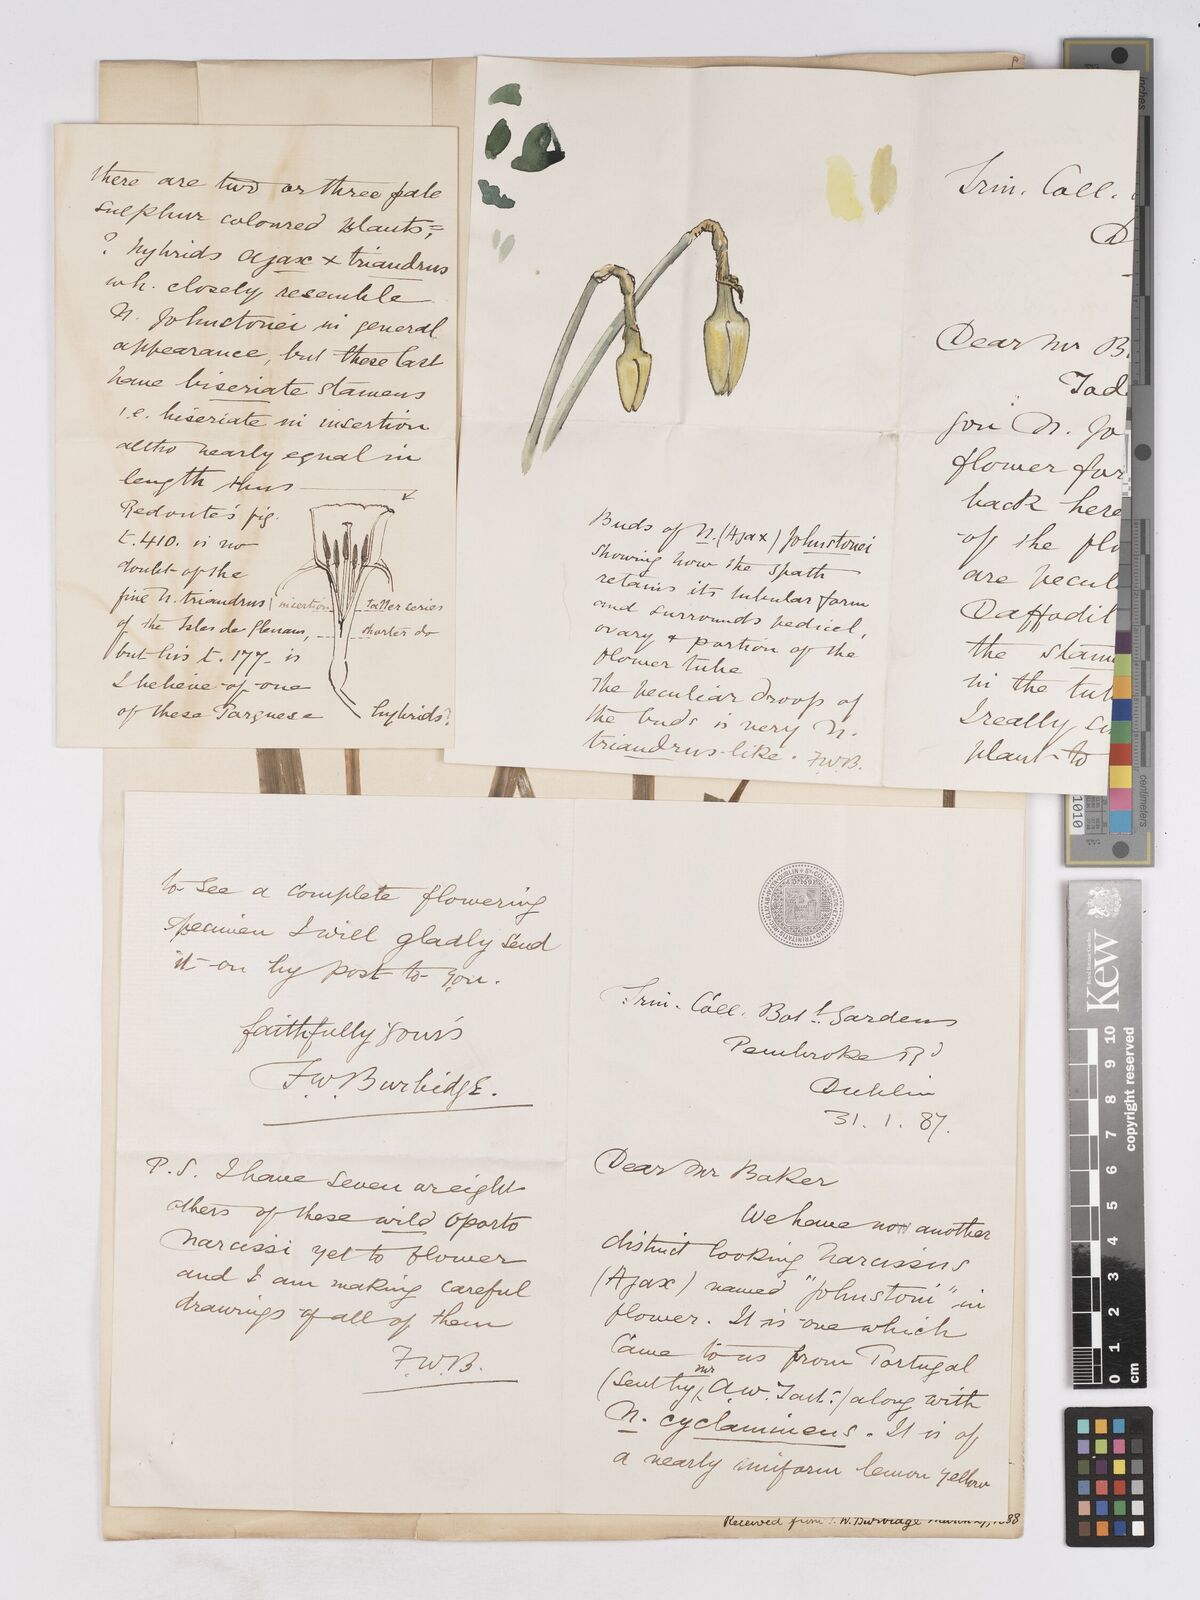 there are two or three pale
sulphur coloured plants,=
? hybrids ajax x triandrus
wh. closely resemble
N. Johnstonei in general
appearance, but these last
have biseriate stamens
i.e. biseriate in insertion
altho nearly equal in
length thus
Redoute's fig.
t. 410. is no
doubt of the
fine N. triandrus
of the Isles de Glenans,
but his t. 177 is
I believe of one
of these Parguese
hybrids?
insertion
taller series
shorter do
Buds of N. (Ajax) Johnstonei
showing how the spath
retains its tubular form
and surrounds pedicel,
ovary & portion of the
flower tube
The peculiar droop of
the buds is very N.
triandrus-like. F.W.B.
Trin. Coll.
D
Dear Mr B
Tod
you N. Jo
flower for
back here
of the flo
are pecul
Daffodil
the stam
in the tub
I really su
plant to
to see a complete flowering
specimen I will gladly send
it on by post to you.
faithfully yours
F.W. Burbidge.
P.S. I have seven or eight
others of these wild Oporto
Narcissi yet to flower
and I am making careful
drawings of all of them
F.W.B.
Trin. Coll. Bot! Gardens
Pembroke Rd
Dublin
31. 1. 87.
Dear Mr Baker
We have now another
distinct looking Narcissus
(Ajax) named "Johnstoni" in
flower. It is one which
came to us from Portugal
(sent by Mr A.W. Tait) along with
N. cyclamineus. It is of
a nearly uniform lemon yellow
Received from F. W. Burbidge March 1888
inches
centimeters
1010
Royal Botanic Gardens
Kew
copyright reserved
0 1 2 3 4 5 6 7 8 9 10
cm